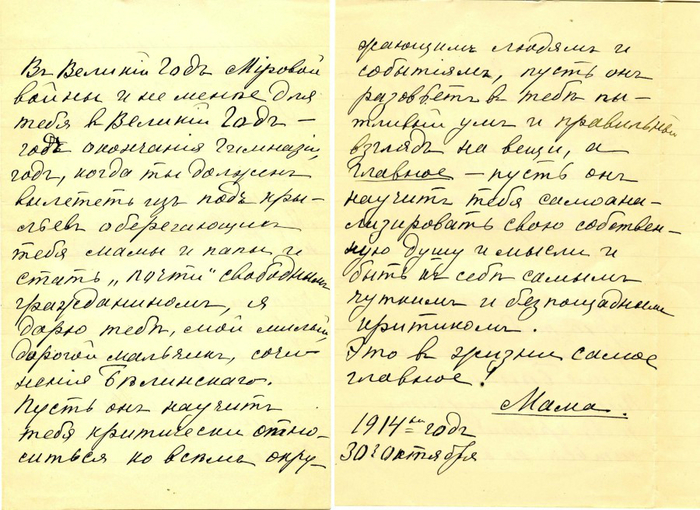 Въ Великій Годъ Міровой
войны и не менѣе для
тебя в Великій Годъ –
годъ окончанія Гимназіи,
годъ, когда ты долженъ
вылететь изъ подъ кры-
льевъ оберегающихъ
тебя мамы и папы и
стать „почти" свободнымъ
гражданиномъ, я
дарю тебѣ, мой милый,
дорогой мальчикъ, сочи-
ненія Бѣлинскаго.
Пусть онъ научитъ
тебя критически отно-
ситься ко всѣмъ окру-
жающимъ людямъ и
событіямъ, пусть онъ
разовьетъ в тебѣ пы-
тливый умъ и правильный
взглядъ на вещи, а
главное – пусть онъ
научитъ тебя самоана-
лизировать свою собствен-
ную душу и мысли и
быть къ себѣ самымъ
чуткимъ и безпощаднымъ
критикомъ.
Это в жизни самое
главное!
Мама.
1914 годъ
30го октября